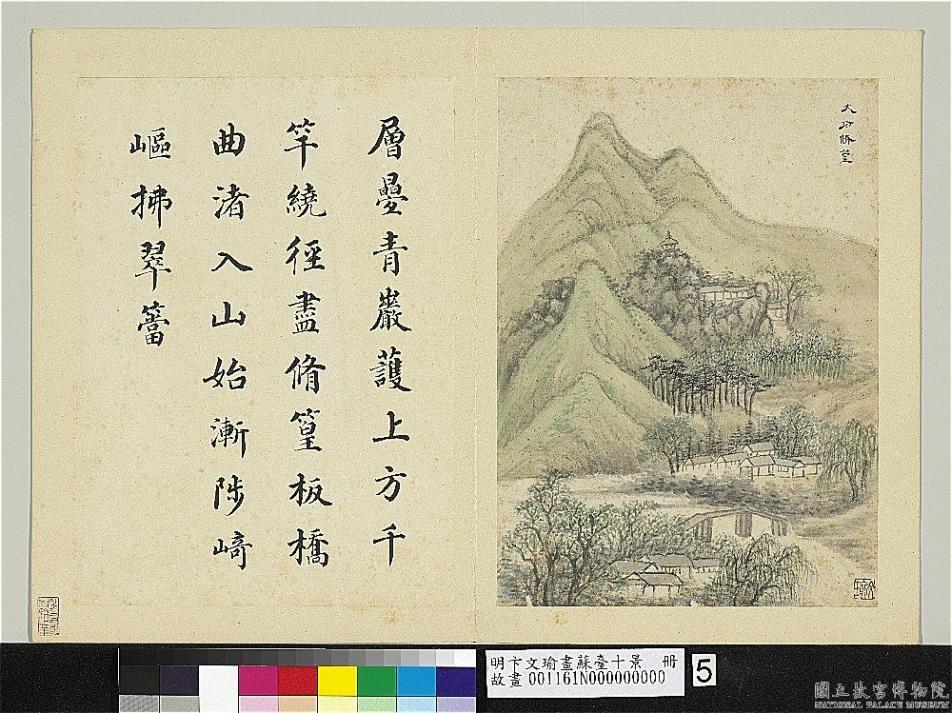 大石脩篁
層疊青巖護上方千
竿繞徑盡脩篁板橋
曲渚入山始漸陟崎
嶇拂翠簹
明卞文瑜畫蘇臺十景 冊
故畫 001161N000000000
5
國立故宮博物院
NATIONAL PALACE MUSEUM